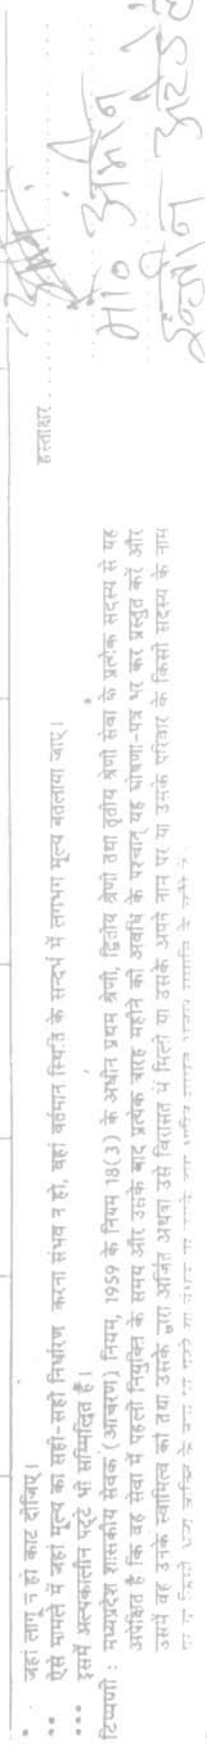 * जहां लागू न हो काट दीजिए।
** ऐसे मामले में जहां मूल्य का सही-सही निर्धारण करना संभव न हो, वहां वर्तमान स्थिति के सन्दर्भ में लगभग मूल्य बतलाया जाए।
*** इसमें अल्पकालीन पट्टे भी सम्मिलित हैं।
हस्ताक्षर
मो० आमीन
टिप्पणी : मध्यप्रदेश शासकीय सेवक (आचरण) नियम, 1959 के नियम 18(3) के अधीन प्रथम श्रेणी, द्वितीय श्रेणी तथा तृतीय श्रेणी सेवा के प्रत्येक सदस्य से यह
अपेक्षित है कि वह सेवा में पहली नियुक्ति के समय और उसके बाद प्रत्येक बारह महीने की अवधि के पश्चात् यह घोषणा-पत्र भर कर प्रस्तुत करें और
उसमें वह उनके स्वामित्व की तथा उसके द्वारा अर्जित अथवा उसे विरासत में मिली या उसके अपने नाम पर या उसके परिवार के किसी सदस्य के नाम